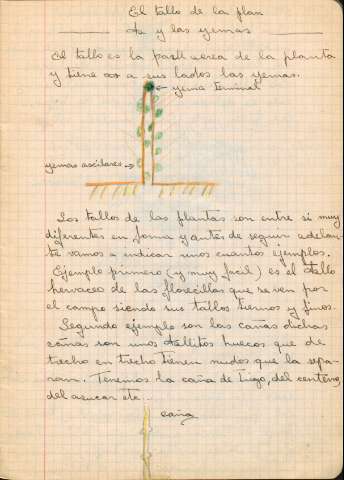 El tallo de la plan
ta y las yemas
El tallo es la parte aerea de la planta
y tiene a sus lados las yemas.
yema terminal
yemas axilares
Los tallos de las plantas son entre si muy
diferentes en forma y antes de seguir adelan
te vamos a indicar unos cuantos ejemplos.
Ejemplo primero (y muy facil) es el tallo
hervaceo de las florecillas que se ven por
el campo siendo sus tallos tiernos y finos.
Segundo ejemplo son las cañas dichas
cañas son unos tallitos huecos que de
trecho en trecho tienen nudos que la sepa
ran. Tenemos la caña de trigo, del centeno,
del azucar etc...
caña